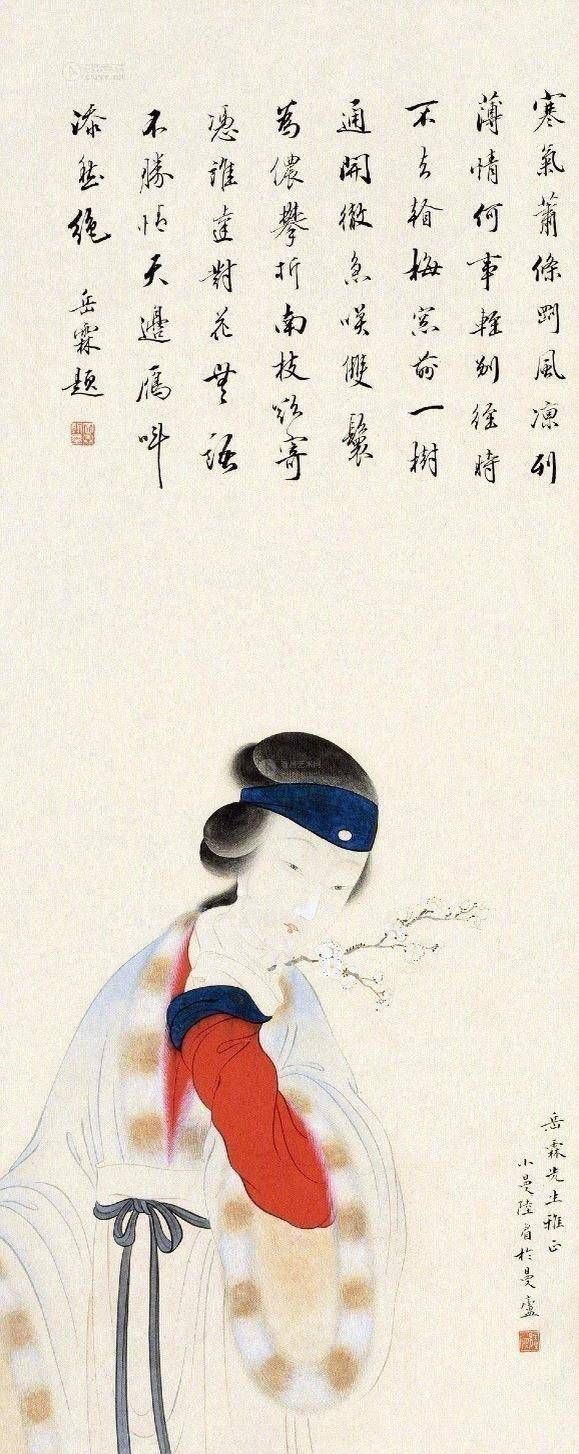 寒氣蕭條剛風凛列
薄情何事輕别經時
不去看梅窓前一樹
通開徹急唤雙鬟
為儂攀折南枝欲寄
憑誰達對花無語
不勝情天邊鴈叫
添愁絶 岳霖題
岳霖先生雅正
小曼陸眉於曼廬